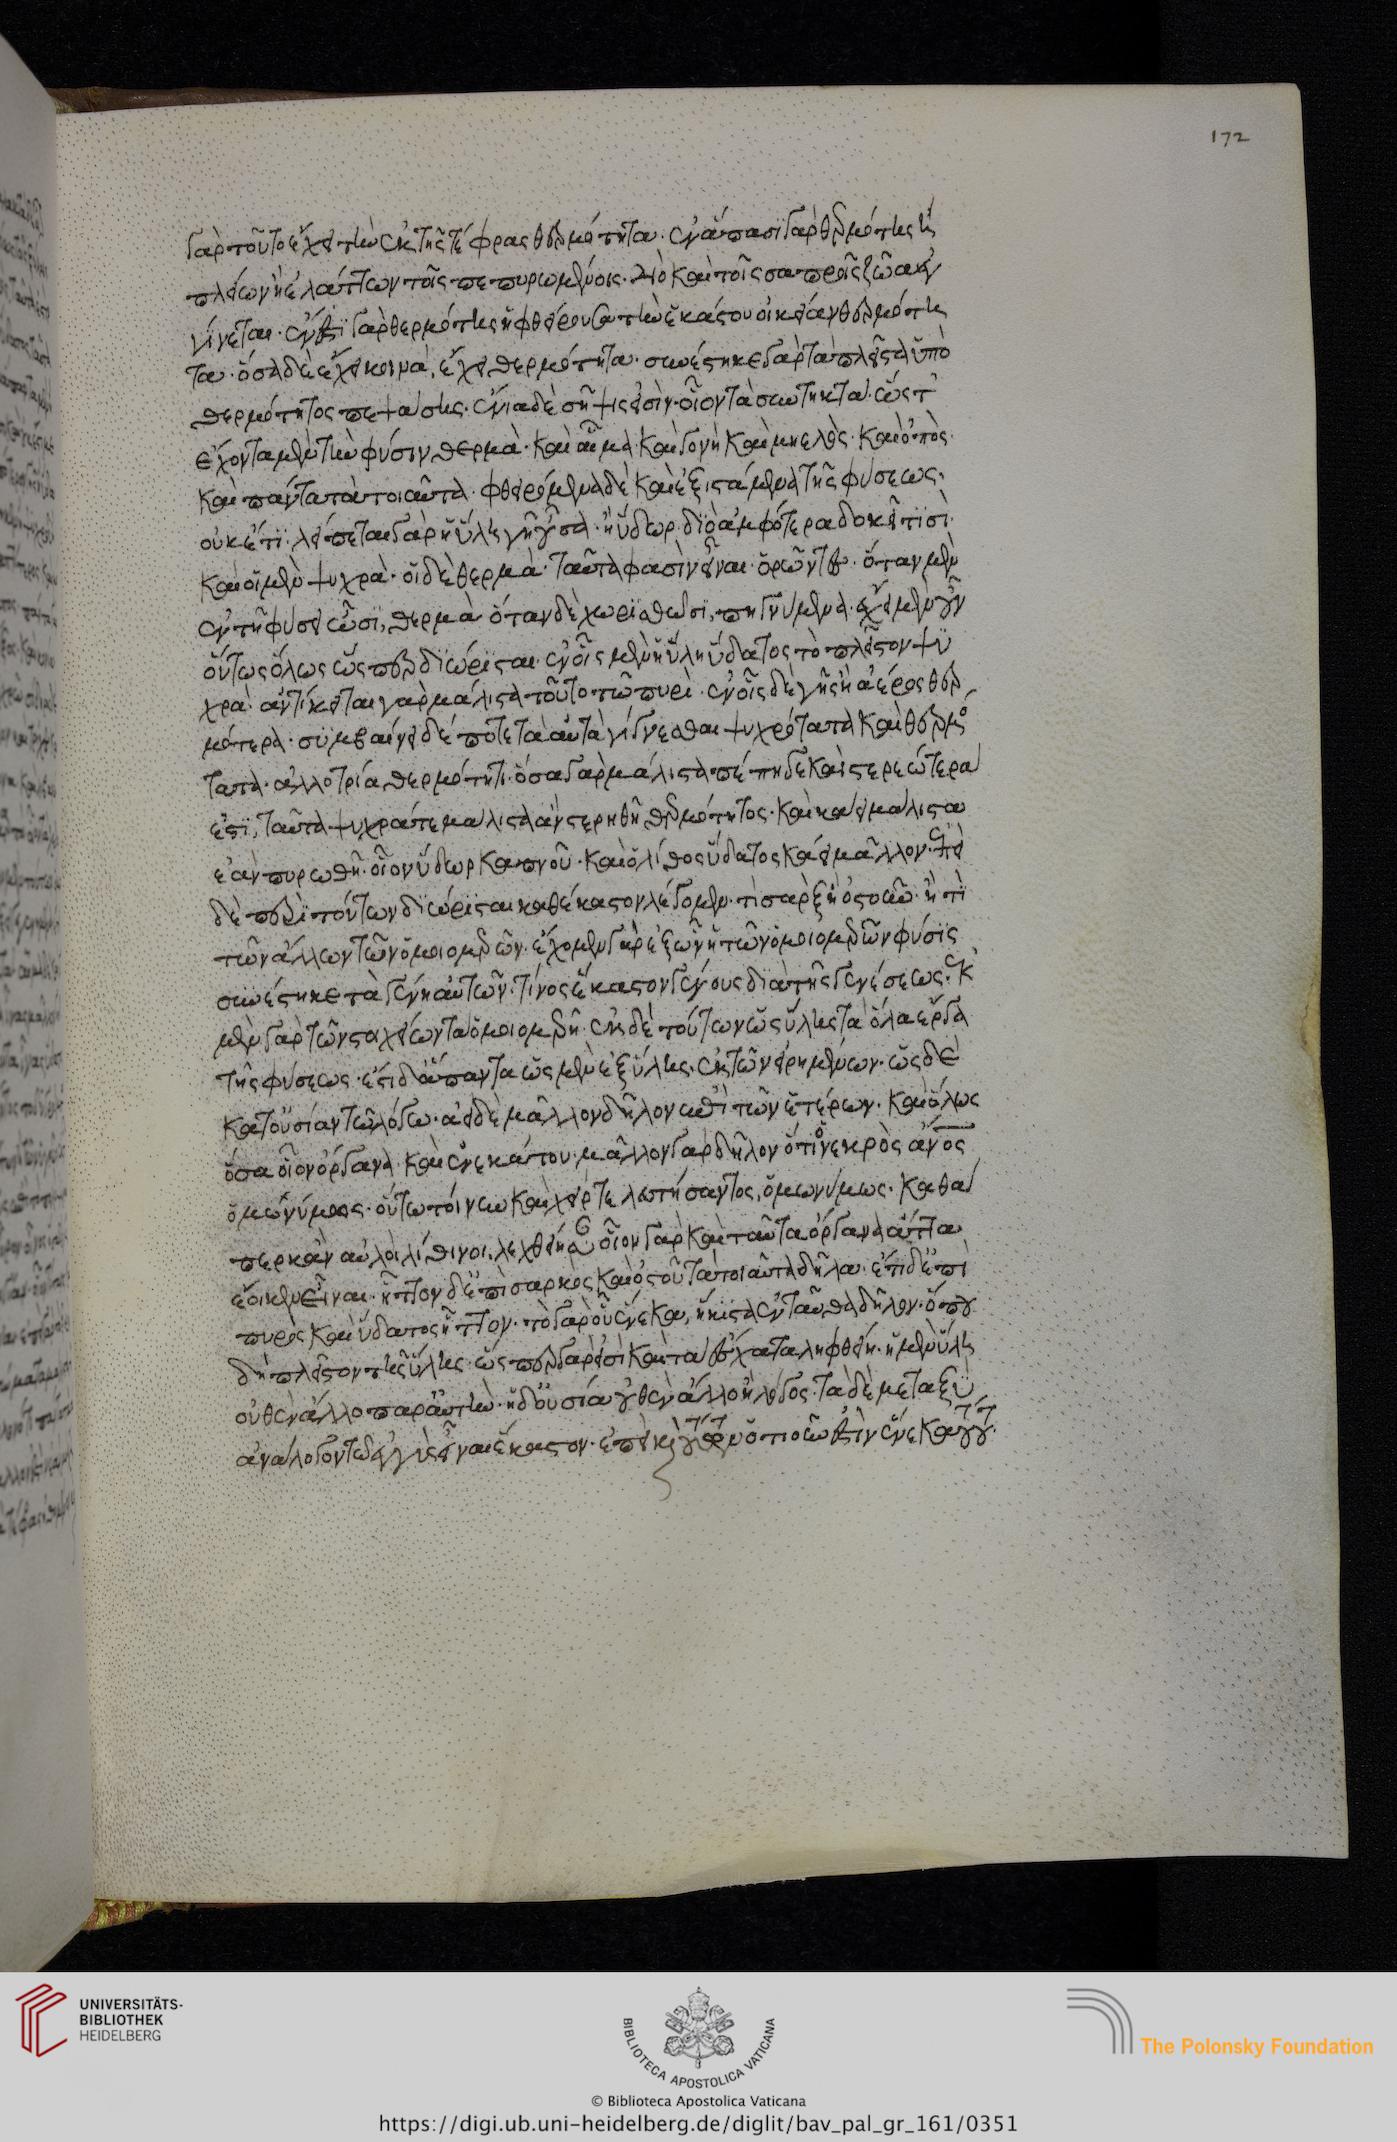 γὰρ τοῦτο ἔχει τὴν ἐκ τῆς τέφρας θερμότητα· ἐν ἅπασι γὰρ θερμότης ἢ
πλείων ἢ ἐλάττων τοῖς πεπυρωμένοις· διὸ καὶ τοῖς σαπροῖς ζῶα ἐγ
γίνεται· ἔνεστι γὰρ θερμότης ἡ φθείρουσα τὴν ἑκάστου οἰκείαν θερμότη
τα· ὅσα δὲ ἔχει κοινά, ἔχει θερμότητα· συνέστηκε γὰρ τὰ πλεῖστα ὑπὸ
θερμότητος πεψάσης· ἔνια δὲ σῆψις ἐστὶν· οἷον τὰ συντηκτά· ὥστ'
ἔχοντα μὲν τὴν φύσιν θερμά· καὶ αἷμα· καὶ γονὴ καὶ μυελὸς· καὶ ὀπὸς·
καὶ πάντα τὰ τοιαῦτα· φθειρόμενα δὲ καὶ ἐξιστάμενα τῆς φύσεως·
οὐκέτι· λείπεται γὰρ ἡ ὕλη γῆ οὖσα· ἢ ὕδωρ· διὸ ἀμφότερα δοκεῖ τισι·
καὶ οἱ μὲν ψυχρὰ· οἱ δὲ θερμὰ· ταῦτά φασὶν εἶναι· ὁρῶντες· ὅταν μὲν
ἐν τῇ φύσει ὦσι, θερμὰ ὅταν δὲ χωρισθῶσι, πηγνύμενα· ἔχει μὲν οὖν
οὕτως ὅλως ὥσπερ διώρισται· ἐν οἷς μὲν ἡ ὕλη ὕδατος τὸ πλεῖστον ψυ
χρὰ· ἀντίκειται γὰρ μάλιστα τοῦτο τῶ πυρὶ· ἐν οἷς δὲ γῆς ἢ ἀέρος θερ
μότερα· συμβαίνει δέ ποτε τὰ αὐτὰ γίγνεσθαι ψυχρότατα καὶ θερμό
τατα· ἀλλοτρία θερμότητι· ὅσα γὰρ μάλιστα πέπηγε καὶ στερεώτερα
ἐστι, ταῦτα ψυχρά τε μάλιστα ἂν στερηθῆ θερμότητος· καὶ καίει μάλιστα
ἐὰν πυρωθῆ· οἷον ὕδωρ καπνοῦ· καὶ ὁ λίθος ὕδατος καίει μᾶλλον· ἐπεὶ
δὲ περὶ τούτων διώρισται καθέκαστον λέγομεν· τί σὰρξ ἢ ὀστοῦν· ἢ τί
τῶν ἄλλων τῶν ὁμοιομερῶν· ἔχομεν γὰρ ἐξ ὧν ἡ τῶν ὁμοιομερῶν φύσις
συνέστηκε τὰ γένη αὐτῶν· τίνος ἕκαστον γένους διὰ τῆς γενέσεως· ἐκ
μὲν γὰρ τῶν στοιχείων τὰ ὁμοιομερῆ· ἐκ δὲ τούτων ὡς ὕλης τὰ ὅλα ἔργα
τῆς φύσεως· ἔστι δ' ἅπαντα ὡς μὲν ἐξ ὕλης· ἐκ τῶν εἰρημένων· ὡς δὲ
κατ' οὐσίαν τῶ λόγω· ἀεὶ δὲ μᾶλλον δῆλον ἐπὶ τῶν ὑστέρων· καὶ ὅλως
ὅσα οἷον ὄργανα· καὶ ἕνεκά του· μᾶλλον γὰρ δῆλον ὅτι ὁ νεκρὸς ἄνος
ὁμωνύμως· οὕτω τοίνυν καὶ χεὶρ τελευτήσαντος, ὁμωνύμως· καθά
περ κἂν αὐλοὶ λίθινοι λεχθείησαν· οἷον γὰρ καὶ ταῦτα ὄργανα ἄττα
ἔοικεν εἶναι· ἧττον δ' ἐπὶ σαρκὸς καὶ ὀστοῦ τὰ τοιαῦτα δῆλα· ἔτι δ' ἐπὶ
πυρὸς καὶ ὕδατος ἧττον· τὸ γὰρ οὗ ἕνεκα, ἥκιστα ἐνταῦθα δῆλον· ὅπου
δὴ πλεῖστον τῆς ὕλης· ὥσπερ γὰρ εἰ καὶ τὰ ἔσχατα ληφθείη· ἡ μὲν ὕλη
οὐθὲν ἄλλο παρ' αὐτὴν· ἡ δ' οὐσία οὐθὲν ἄλλο ἢ λόγος· τὰ δὲ μεταξὺ
ἀνάλογον τῶ ἐγγὺς εἶναι ἕκαστον· ἐπεὶ καὶ τούτων ὁτιοῦν ἐστὶν ἕνεκά του·
172
UNIVERSITÄTS-
BIBLIOTHEK
HEIDELBERG
BIBLIOTECA APOSTOLICA VATICANA
The Polonsky Foundation
© Biblioteca Apostolica Vaticana
https://digi.ub.uni-heidelberg.de/diglit/bav_pal_gr_161/0351